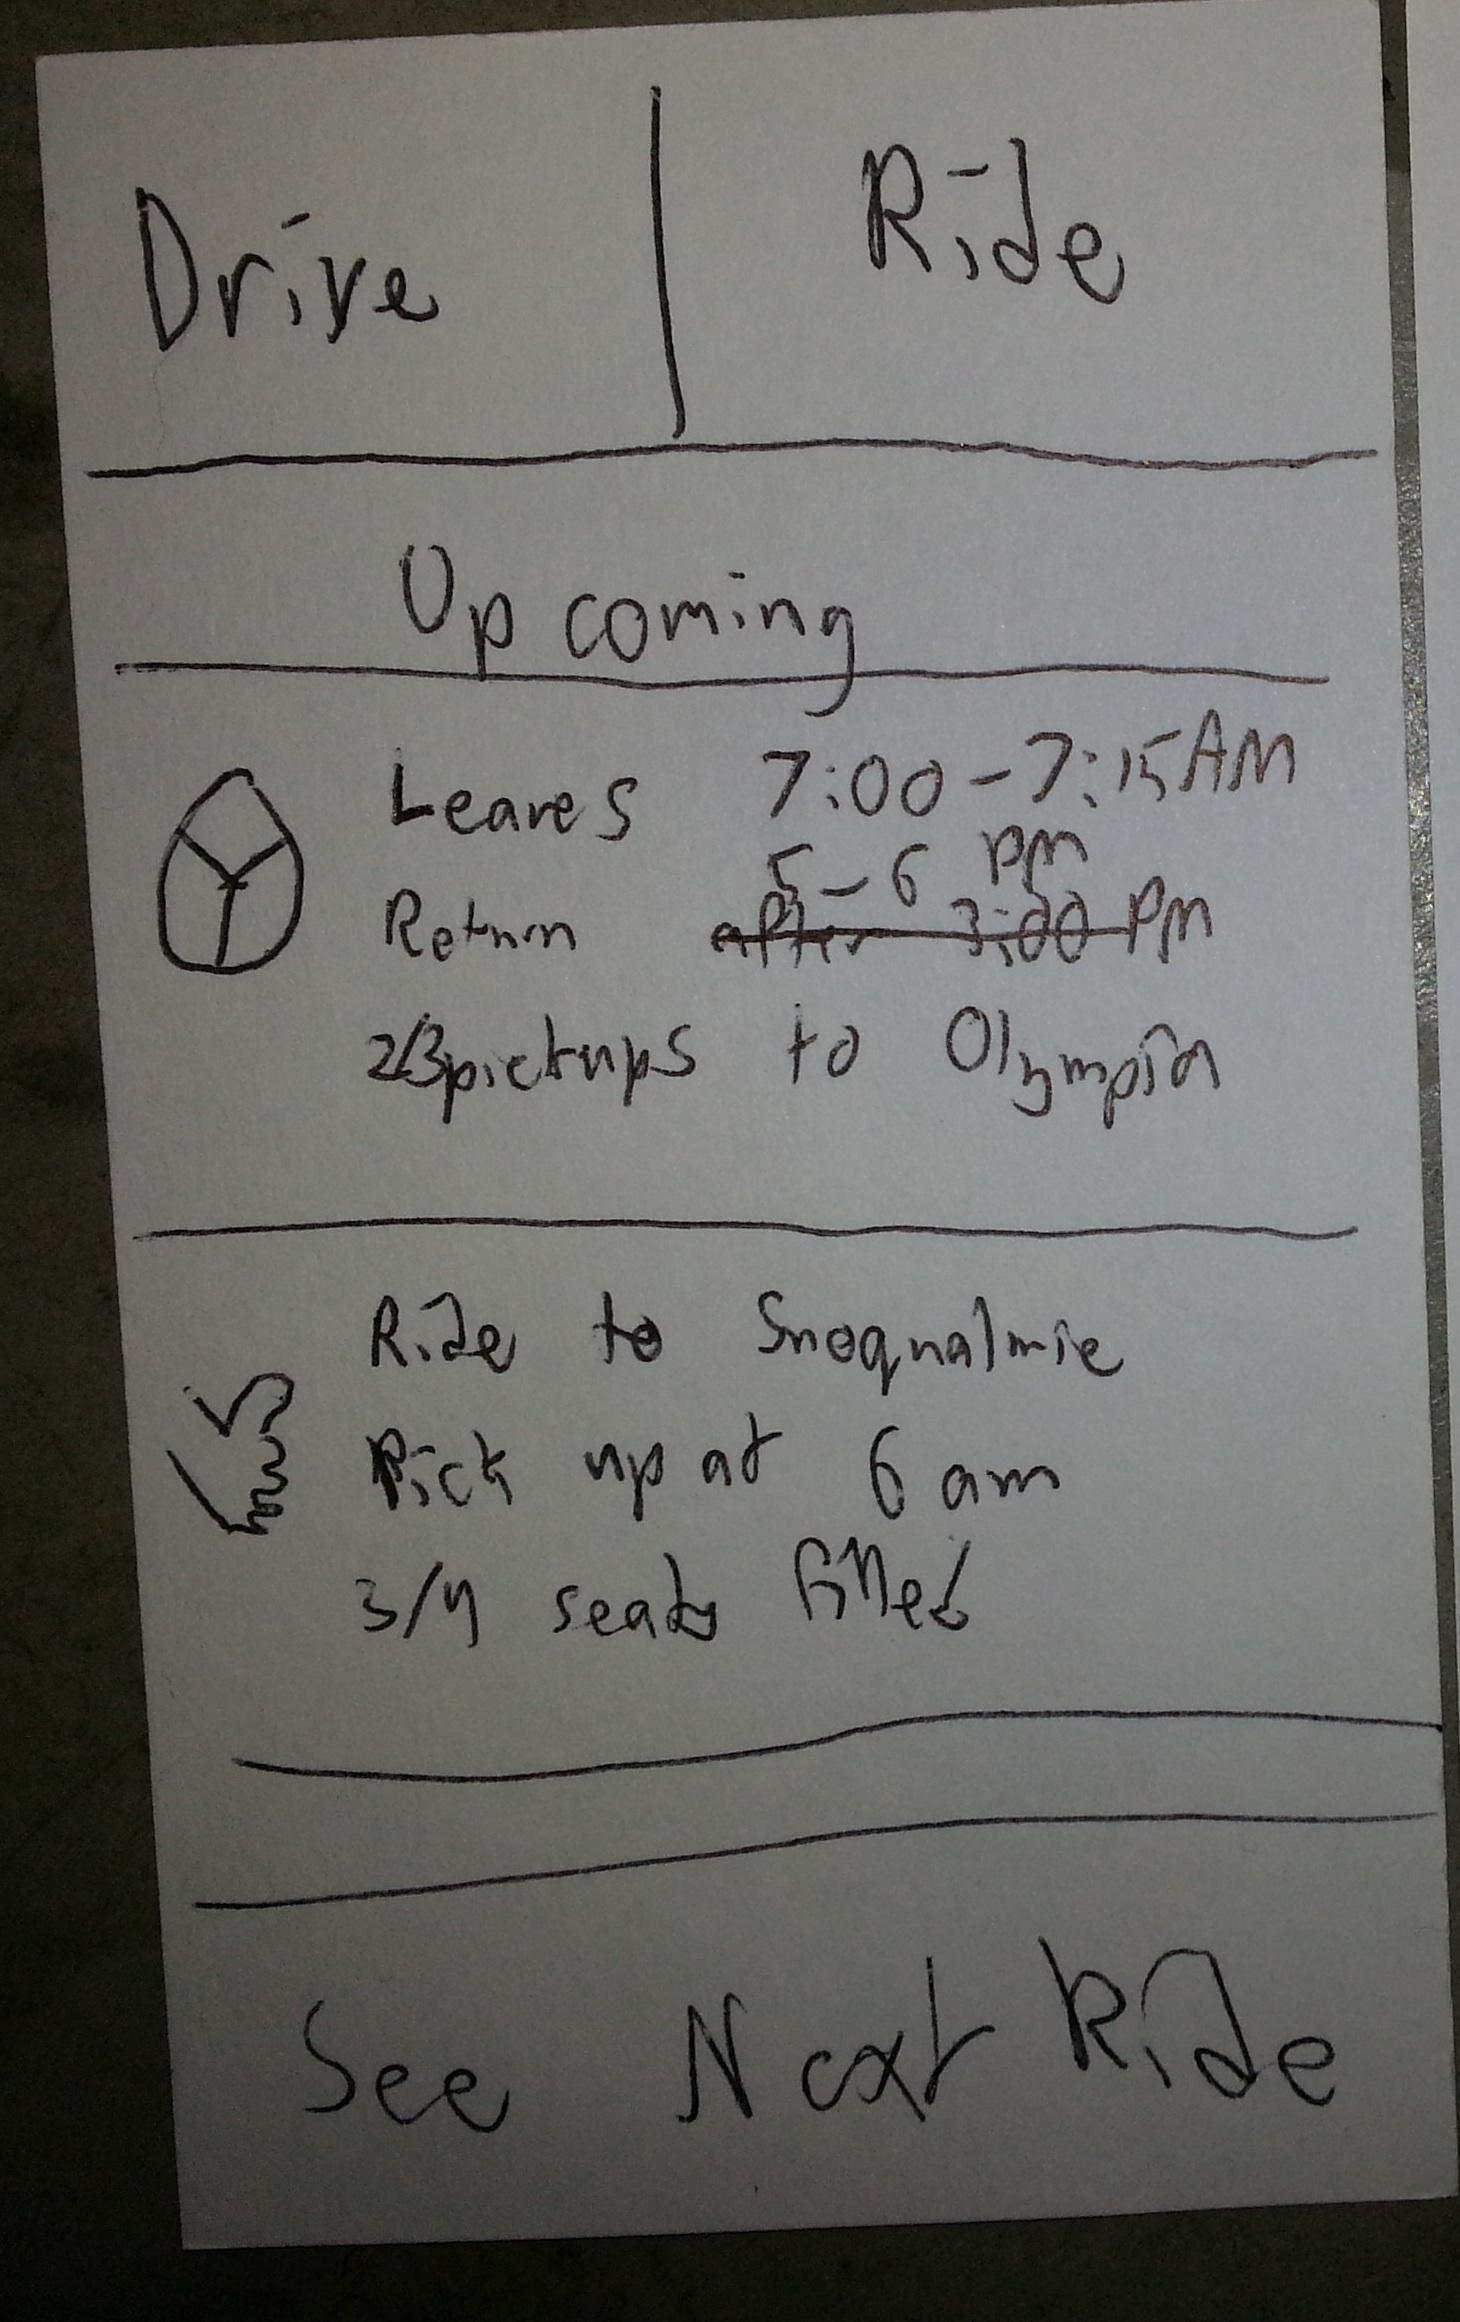 Drive | Ride
Upcoming
Leaves 7:00-7:15AM
5-6 PM
Return after 3:00 PM
2/3 pickups to Olympia
Ride to Snoqualmie
Pick up at 6 am
3/4 seats filled
See Next Ride